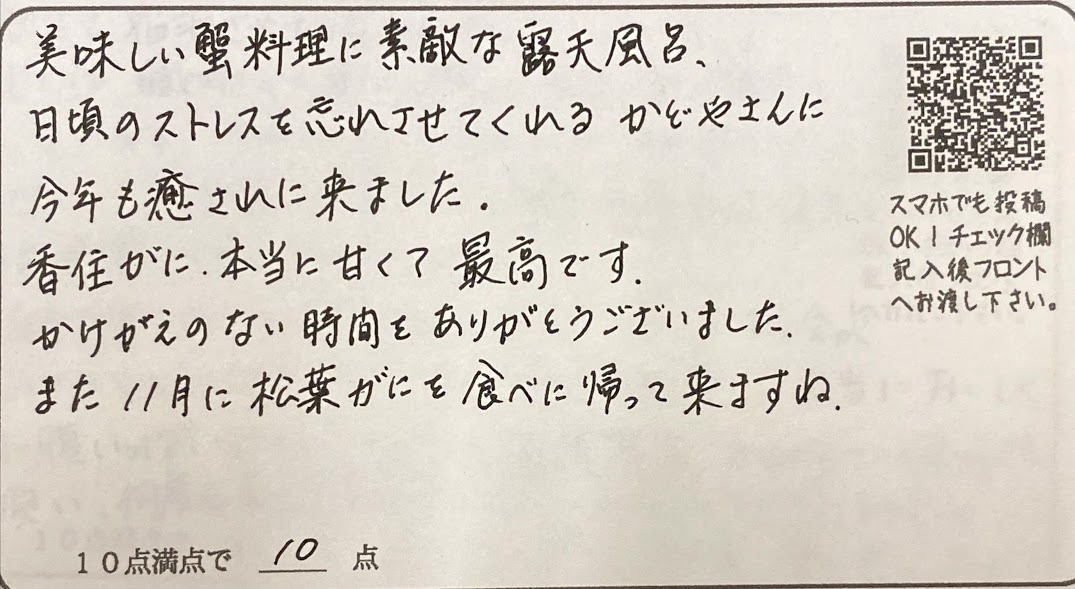 美味しい蟹料理に素敵な露天風呂、
日頃のストレスを忘れさせてくれる かどやさんに
今年も癒されに来ました。
香住がに、本当に甘くて 最高です。
かけがえのない時間を ありがとうございました。
また 11月に 松葉がにを 食べに帰って来ますね。
スマホでも投稿
OK！チェック欄
記入後フロント
へお渡し下さい。
10点満点で 10 点